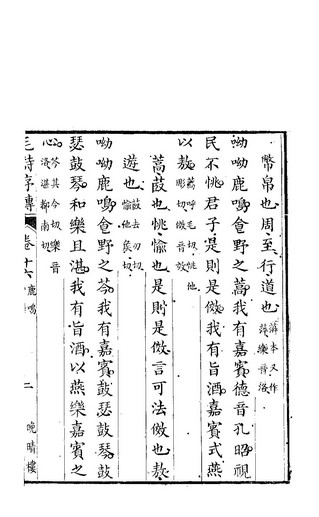 幣帛也周至行道也薛本又作薛樂音洛
呦呦鹿鳴食野之蒿我有嘉賓德音孔昭視
民不恌君子是則是傚我有旨酒嘉賓式燕
以敖蒿呼毛切恌他彫切敖音敖
蒿菣也恌愉也是則是傚言可法傚也敖
遊也菣去刃切愉他侯切
呦呦鹿鳴食野之芩我有嘉賓鼓瑟鼓琴鼓
瑟鼓琴和樂且湛我有旨酒以燕樂嘉賓之
心芩其今切樂音洛湛都南切
毛詩序傳 卷十六 鹿鳴 二 晚晴樓